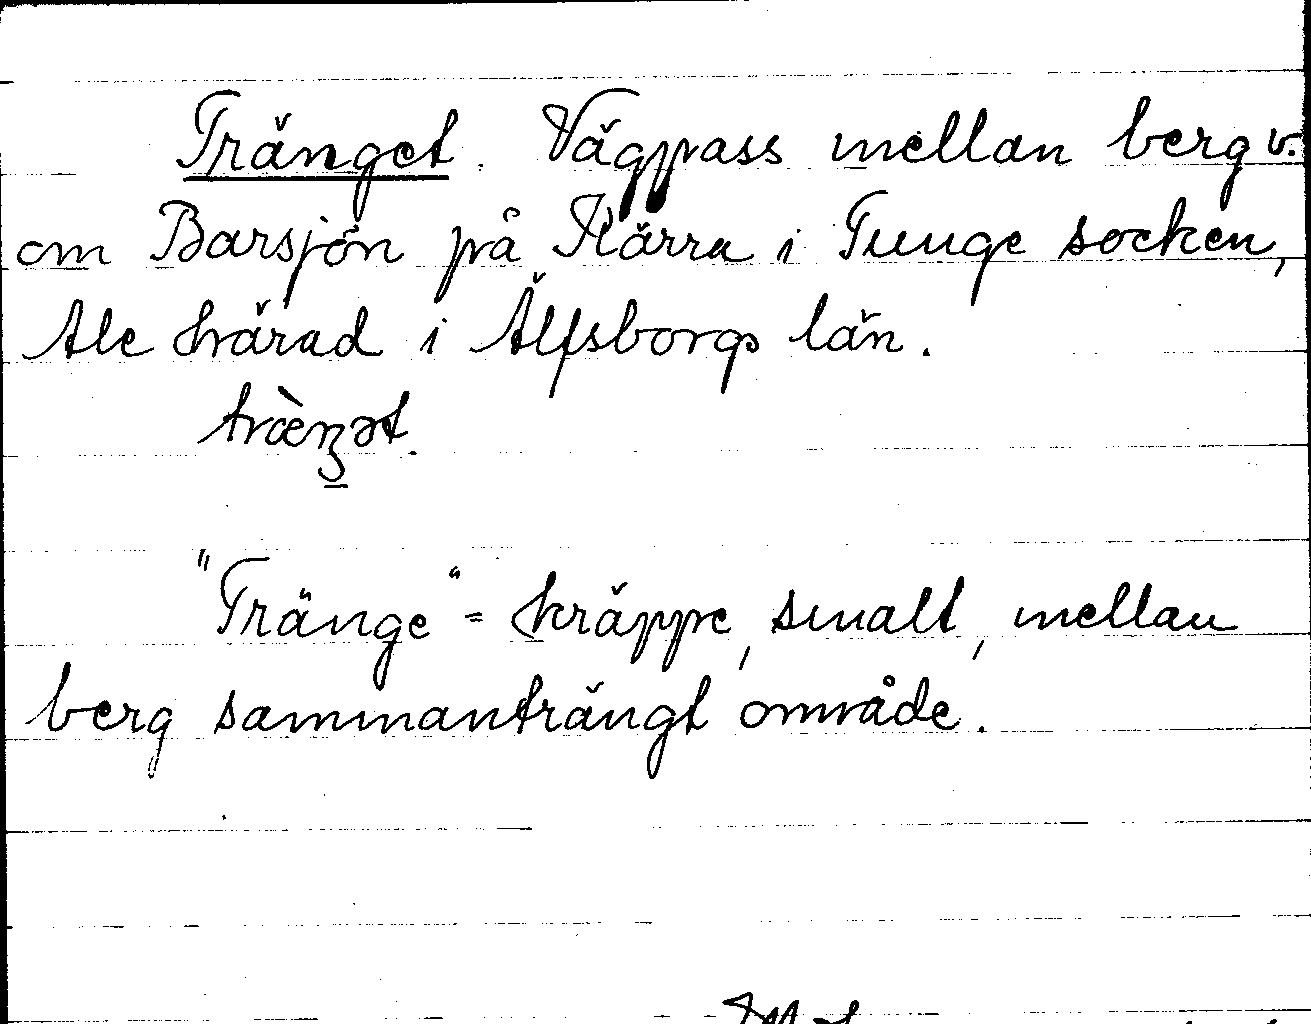 Tränget. Vägpass mellan berg v.
om Barsjön på Kärra i Tunge socken,
Ale härad i Älfsborgs län.
"Tränge" = kräppe, smalt, mellan
berg sammanträngt område.